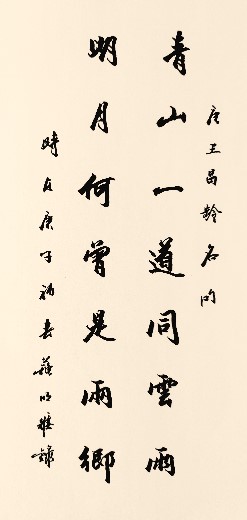 唐王昌齡名句
青山一道同雲雨
明月何曾是兩鄉
時在庚子初春蘇